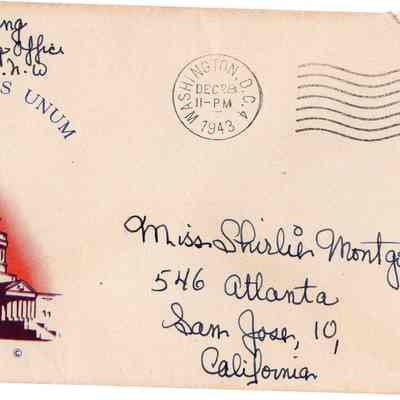 Office
N.W
S UNUM
WASHINGTON, D.C. 4
DEC 28
11-PM
1943
Miss Shirlie Montg
546 Atlanta
San Jose, 10,
California
©